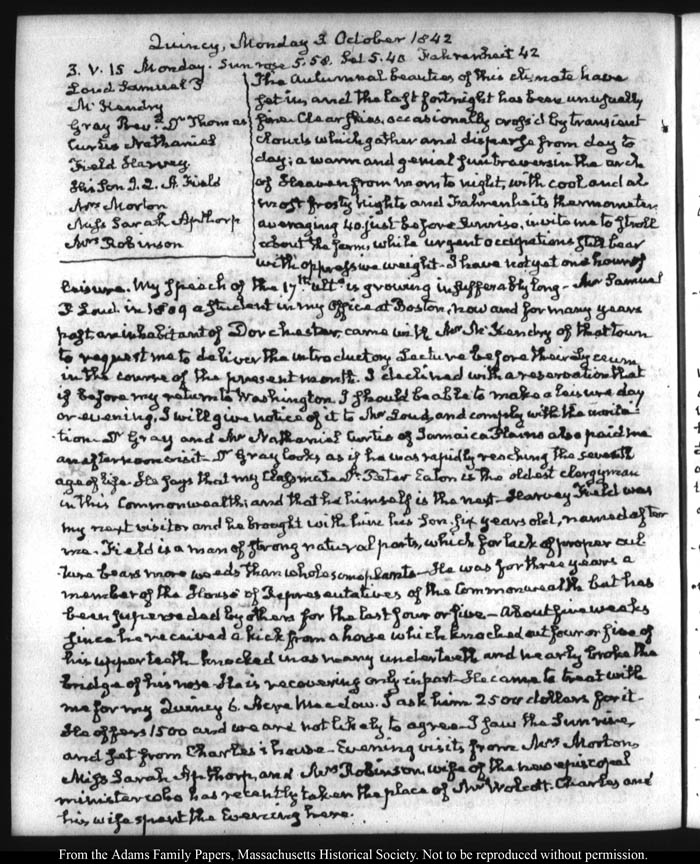 Quincy, Monday 3 October 1842
3. V. 15 Monday. Sun rose 5.58. Set 5.40 Fahrenheit 42
Loud Samuel P
McKendry
Gray Revd. Dr Thomas
Curtis Nathaniel
Field Harvey
His Son J. Q. A. Field
Mrs Morton
Miss Sarah Apthorp
Mrs Robinson
The autumnal beauties of this climate have
set in, and the last fortnight has been unusually
fine. Clear skies, occasionally cross'd by transient
clouds which gather and disperse from day to
day; a warm and genial sun traversing the arch
of Heaven from morn to night, with cool and al
most frosty nights and Fahrenheit's thermometer
averaging 40 just before Sunrise, invite me to stroll
about the farm, while urgent occupations still bear
with oppressive weight. I have not yet one hour of
leisure. My Speech of the 17th. ulto. is growing insufferably long - Mr Samuel
P Loud. in 1809 a Student in my Office at Boston, now and for many years
past an inhabitant of Dorchester, came with Mr McKendry of that town
to request me to deliver the introductory Lecture before their Lyceum
in the course of the present month. I declined with a reservation that
if before my return to Washington I should be able to make a leisure day
or evening, I will give notice of it to Mr Loud, and comply with the invita-
tion. Dr Gray and Mr Nathaniel Curtis of Jamaica Plains also paid me
an afternoon visit. Dr Gray looks as if he was rapidly reaching the seventh
age of life. He says that my Classmate Dr. Peter Eaton is the oldest clergyman
in this Commonwealth; and that he himself is the next. Harvey Field was
my next visitor and he brought with him his Son six years old, named after
me. Field is a man of strong natural parts, which for lack of proper cul
ture bears more weeds than wholesome plants - He was for three years a
member of the House of Representatives of the Commonwealth but has
been superseded by others for the last four or five - About five weeks
since he received a kick from a horse which knocked out four or five of
his upper teeth - knocked in as many under teeth and nearly broke the
bridge of his nose. He is recovering only in part. He came to treat with
me for my Quincy 6. Acre Meadow. I ask him 2500 dollars for it.
He offers 1500 and we are not likely to agree. I saw the Sun rise,
and set from Charles's house - Evening visits from Mrs Morton,
Miss Sarah Apthorp, and Mrs Robinson, wife of the new episcopal
minister who has recently taken the place of Mr Wolcott. Charles and
his wife spent the Evening here.
From the Adams Family Papers, Massachusetts Historical Society. Not to be reproduced without permission.